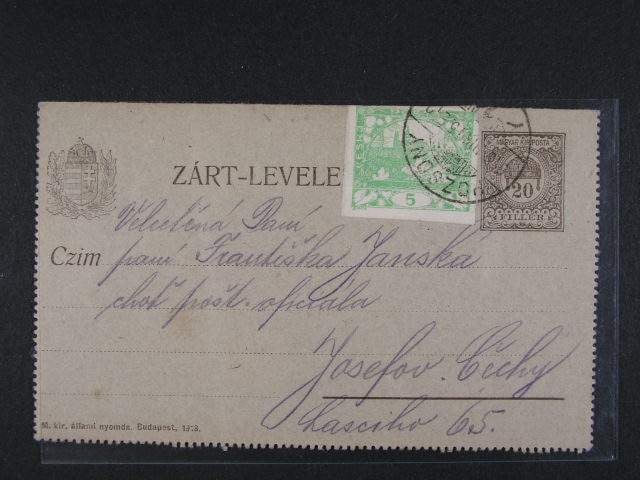 ZÁRT-LEVELE
5
POZSONY
MAGYAR KIR. POSTA
20
FILLÉR
Velectěná Paní
Czim
paní Františka Janská
choť pošt. oficiála
Josefov. Čechy
65.
M. kir. állami nyomda. Budapest, 1918.